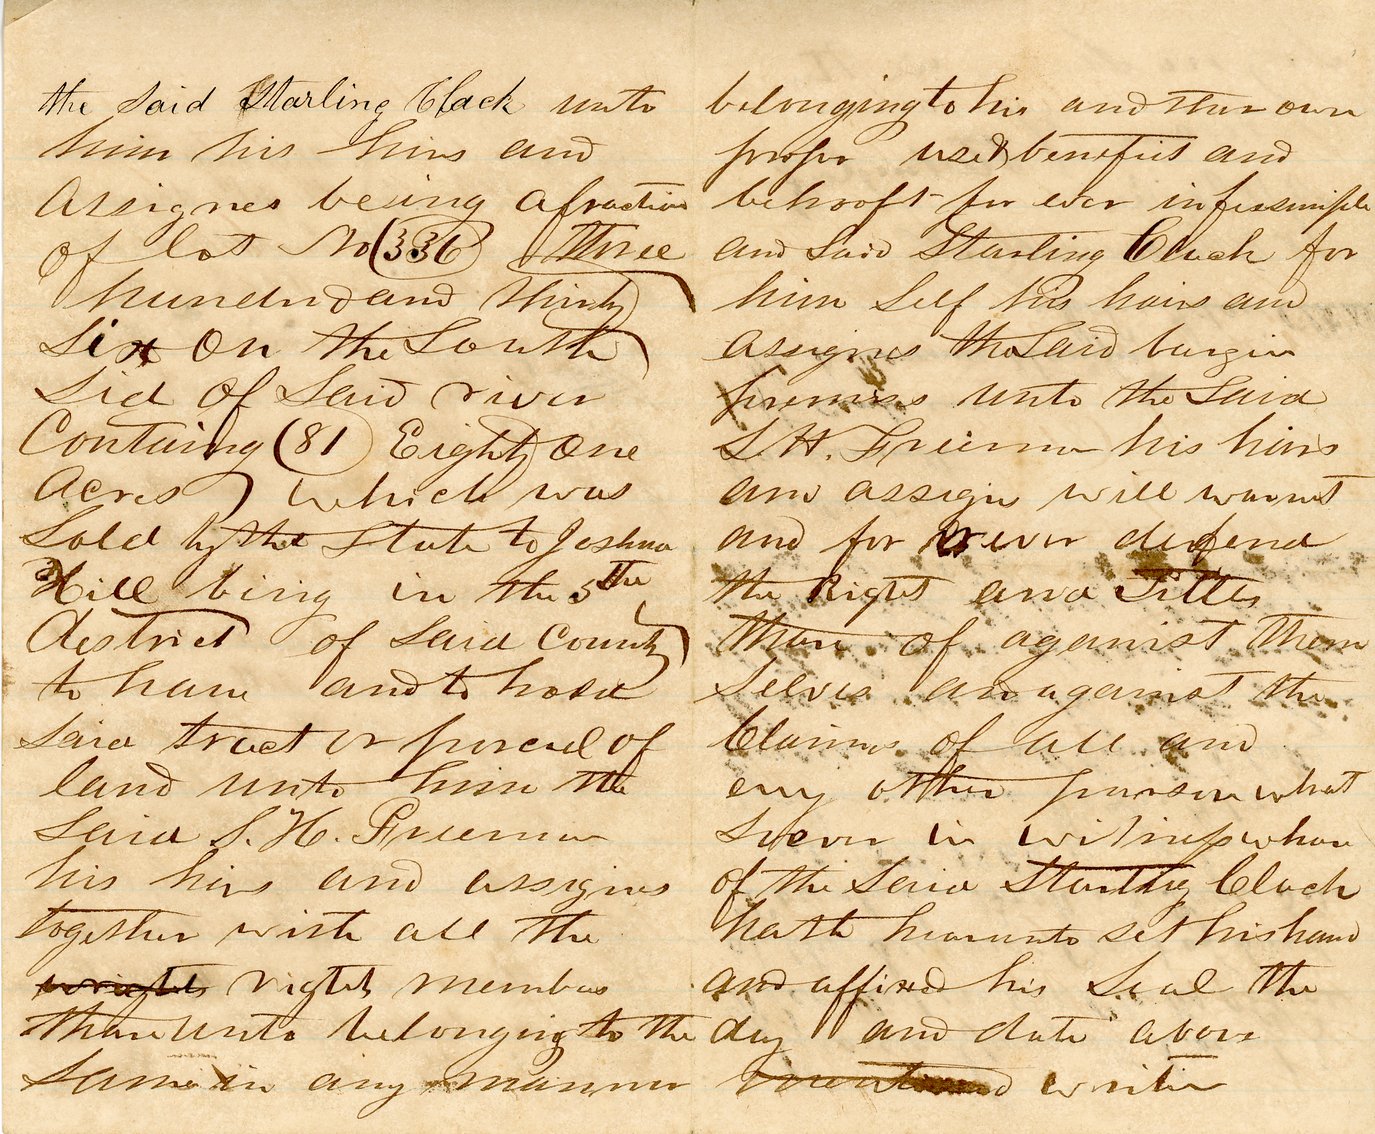 the said Starling Clack unto
him his hirs and
Assignes being a fraction
of lot No (336) three
hundrd and thirty
Six on the South
Sid of Said river
Containg (81) Eighty One
Acres which was
Sold by the State to Joshua
Hill bing in the 5the
destrict of Said County
to have and to hold
Said tract or parcel of
land unto him the
Said S. H. Freeman
his hirs and assignes
together with all the
wrights rights membus
thare unto belonging to the
Same in any mannor
belonging to his and ther own
propr use & benefit and
behooft for ever in feesimple
and Said Starling Clack for
him Self his hairs and
assignes the Said bargin
premiss unto the Said
S. H. Freeman his hairs
and assigns will warnt
and for ever defend
the Right and Tittes
thare of against them
Selves and against the
Claimes of all and
eny other purson what
Soever in witness whare
of the Said Starling Clack
hath hearunto set his hand
and affixed his Seal the
day and date above
writin